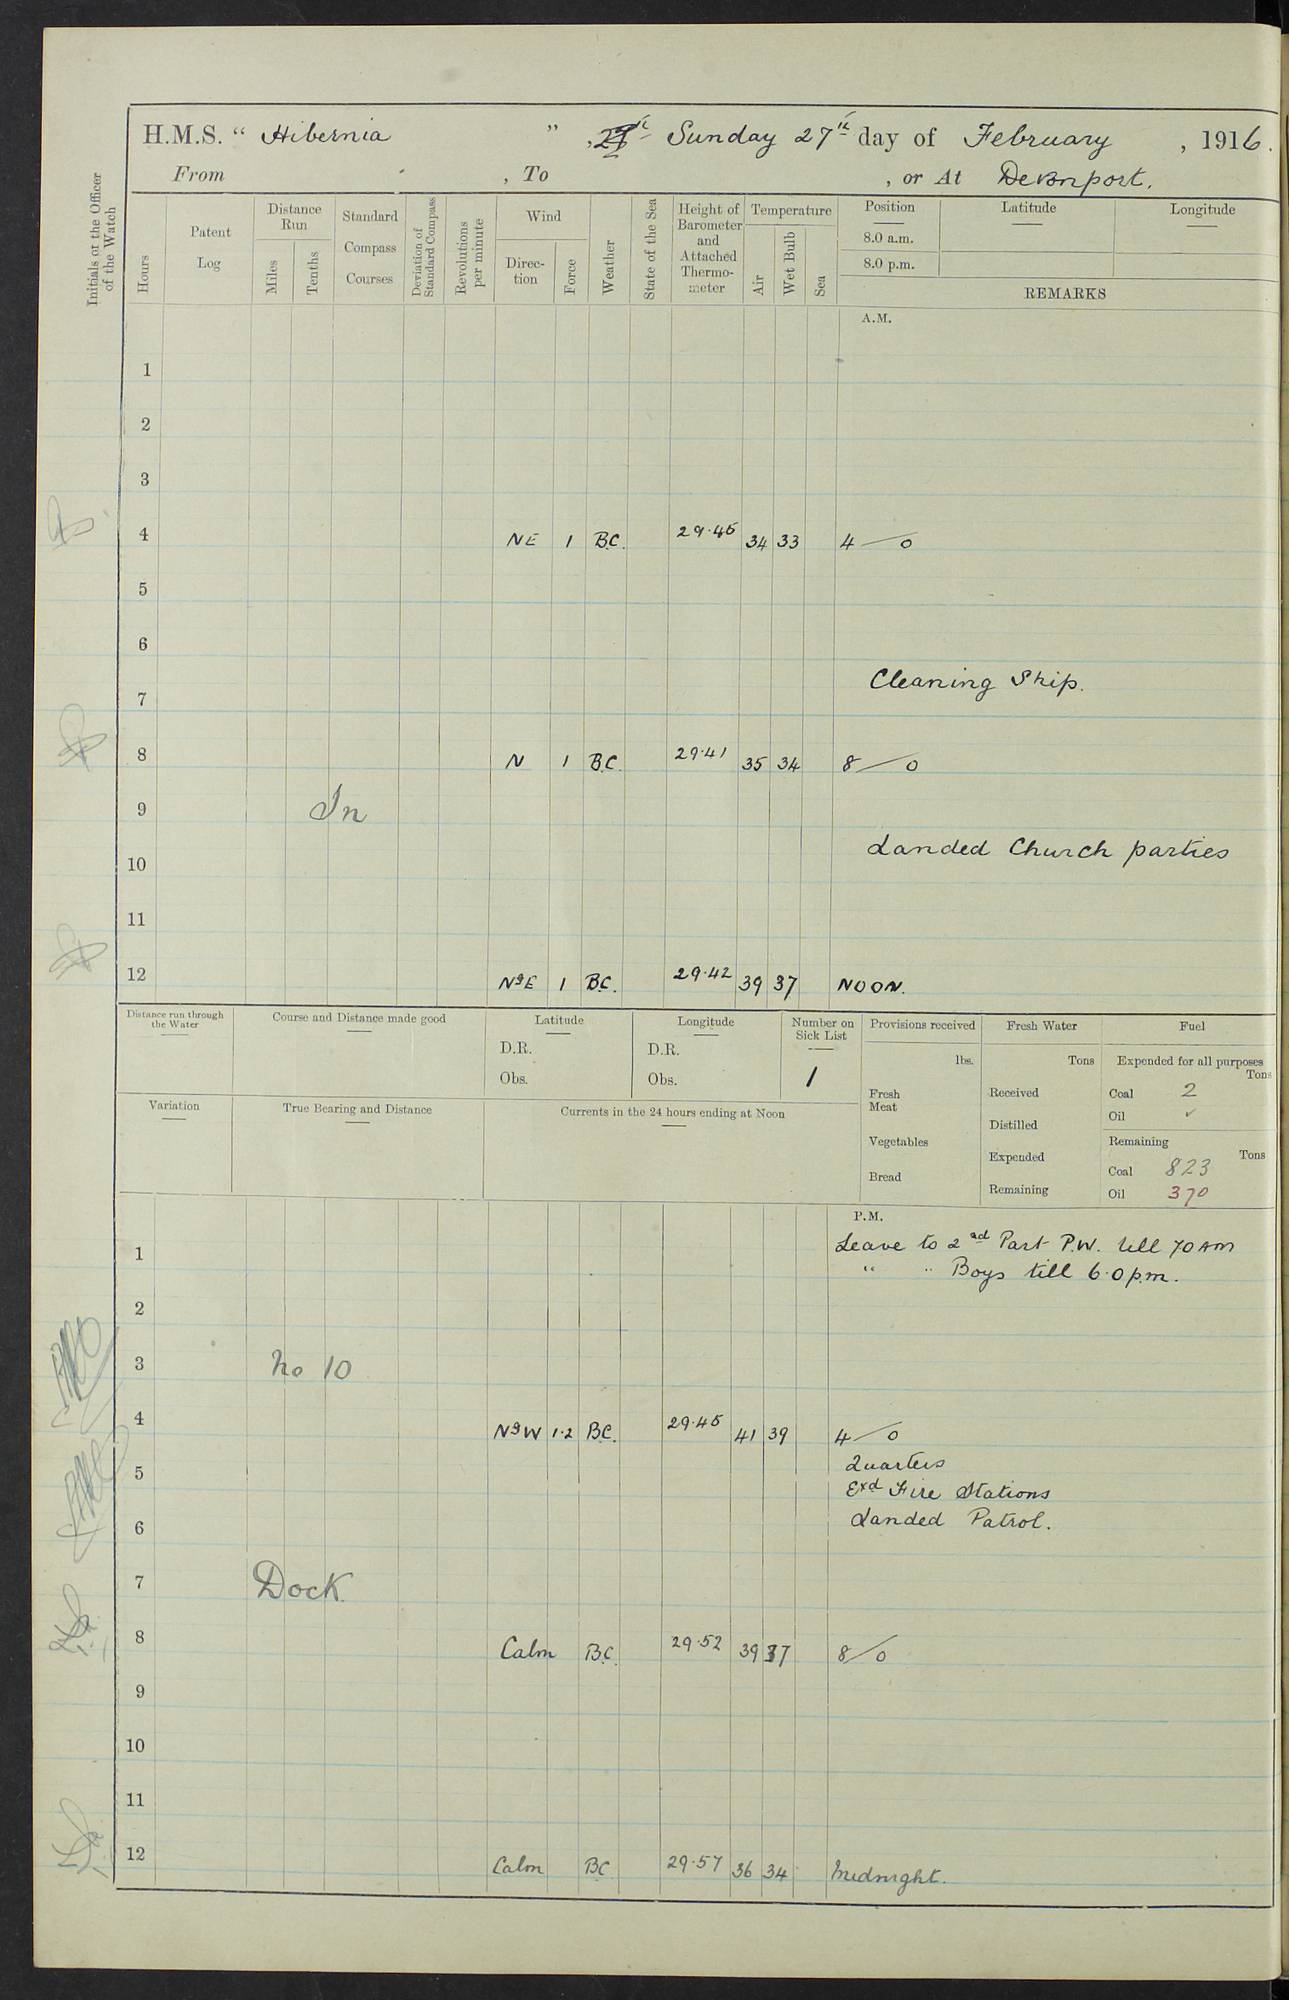 H.M.S. " Hibernia ", Sunday 27th day of February, 1916.
From , To , or At Devonport.
Initials of the Officer of the Watch
Hours
Patent Log
Distance Run
Miles
Tenths
Standard Compass Courses
Deviation of Standard Compass
Revolutions per minute
Wind
Direction
Force
Weather
State of the Sea
Height of Barometer and Attached Thermometer
Temperature
Air
Wet Bulb
Sea
Position Latitude Longitude
8.0 a.m.
8.0 p.m.
REMARKS
A.M.
1
2
3
4 NE 1 B.C. 29.45 34 33 4 — 0
5
6
Cleaning Ship.
7
8 N 1 B.C. 29.41 35 34 8 — 0
9 In
Landed Church parties
10
11
12 N9E 1 B.C. 29.42 39 37 NOON.
Distance run through the Water
Course and Distance made good
Latitude
D.R.
Obs.
Longitude
D.R.
Obs.
Number on Sick List
1
Provisions received
lbs.
Fresh Meat
Vegetables
Bread
Fresh Water
Tons
Received
Distilled
Expended
Remaining
Fuel
Expended for all purposes
Tons
Coal 2
Oil ✓
Remaining
Tons
Coal 823
Oil 370
Variation
True Bearing and Distance
Currents in the 24 hours ending at Noon
P.M.
1 Leave to 2nd Part P.W. till 70 AM
" " Boys till 6.0 p.m.
2
3 No 10
4 N9W 1.2 B.C. 29.45 41 39 4 — 0
Quarters
5
Exd Fire Stations
6 Landed Patrol.
7 Dock
8 Calm B.C. 29.52 39 37 8 — 0
9
10
11
12 Calm BC 29.57 36 34 Midnight.